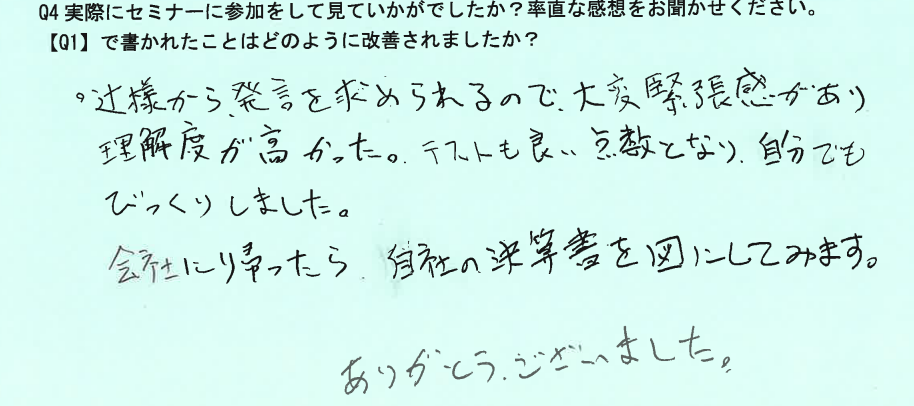 Q4 実際にセミナーに参加をして見ていかがでしたか？率直な感想をお聞かせください。
【Q1】で書かれたことはどのように改善されましたか？
。辻様から、発言を求められるので、大変緊張感があり
理解度が高かった。テストも良い点数となり、自分でも
びっくりしました。
会社に帰ったら、自社の決算書を図にしてみます。
ありがとうございました。